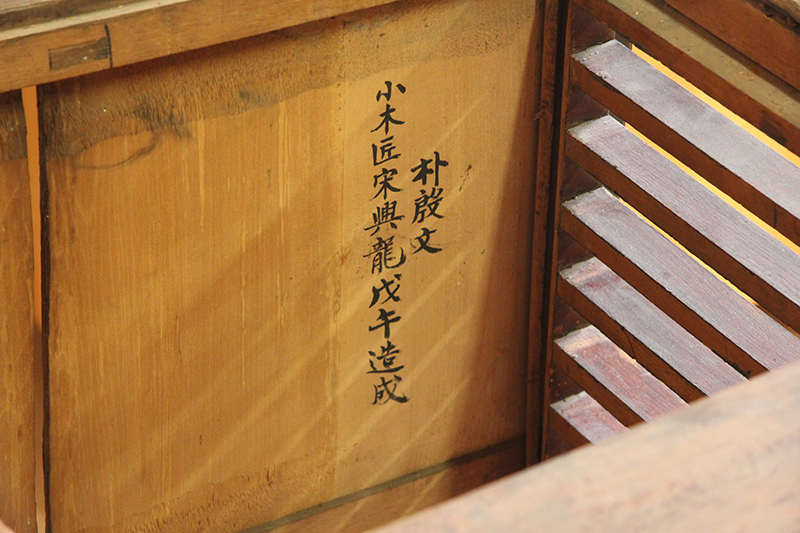 朴殷文
小木匠宋興龍戊午造成